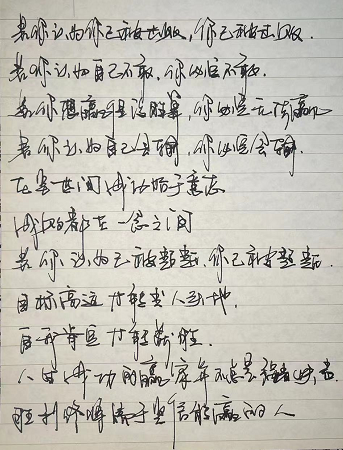 若你认为你已被击败,你已被击败.
若你认为自己不敢,你必定不敢.
若你想赢但没胜算,你必定无法赢
若你认为自己会输,你必定会输.
在尘世间成功始于意志
成败都在一念之间
若你认为已被超越,你已被超越.
目标高远才能出人头地.
自我肯定才能获胜.
人生成功的赢家并不总是强者
胜利终归属于坚信能赢的人